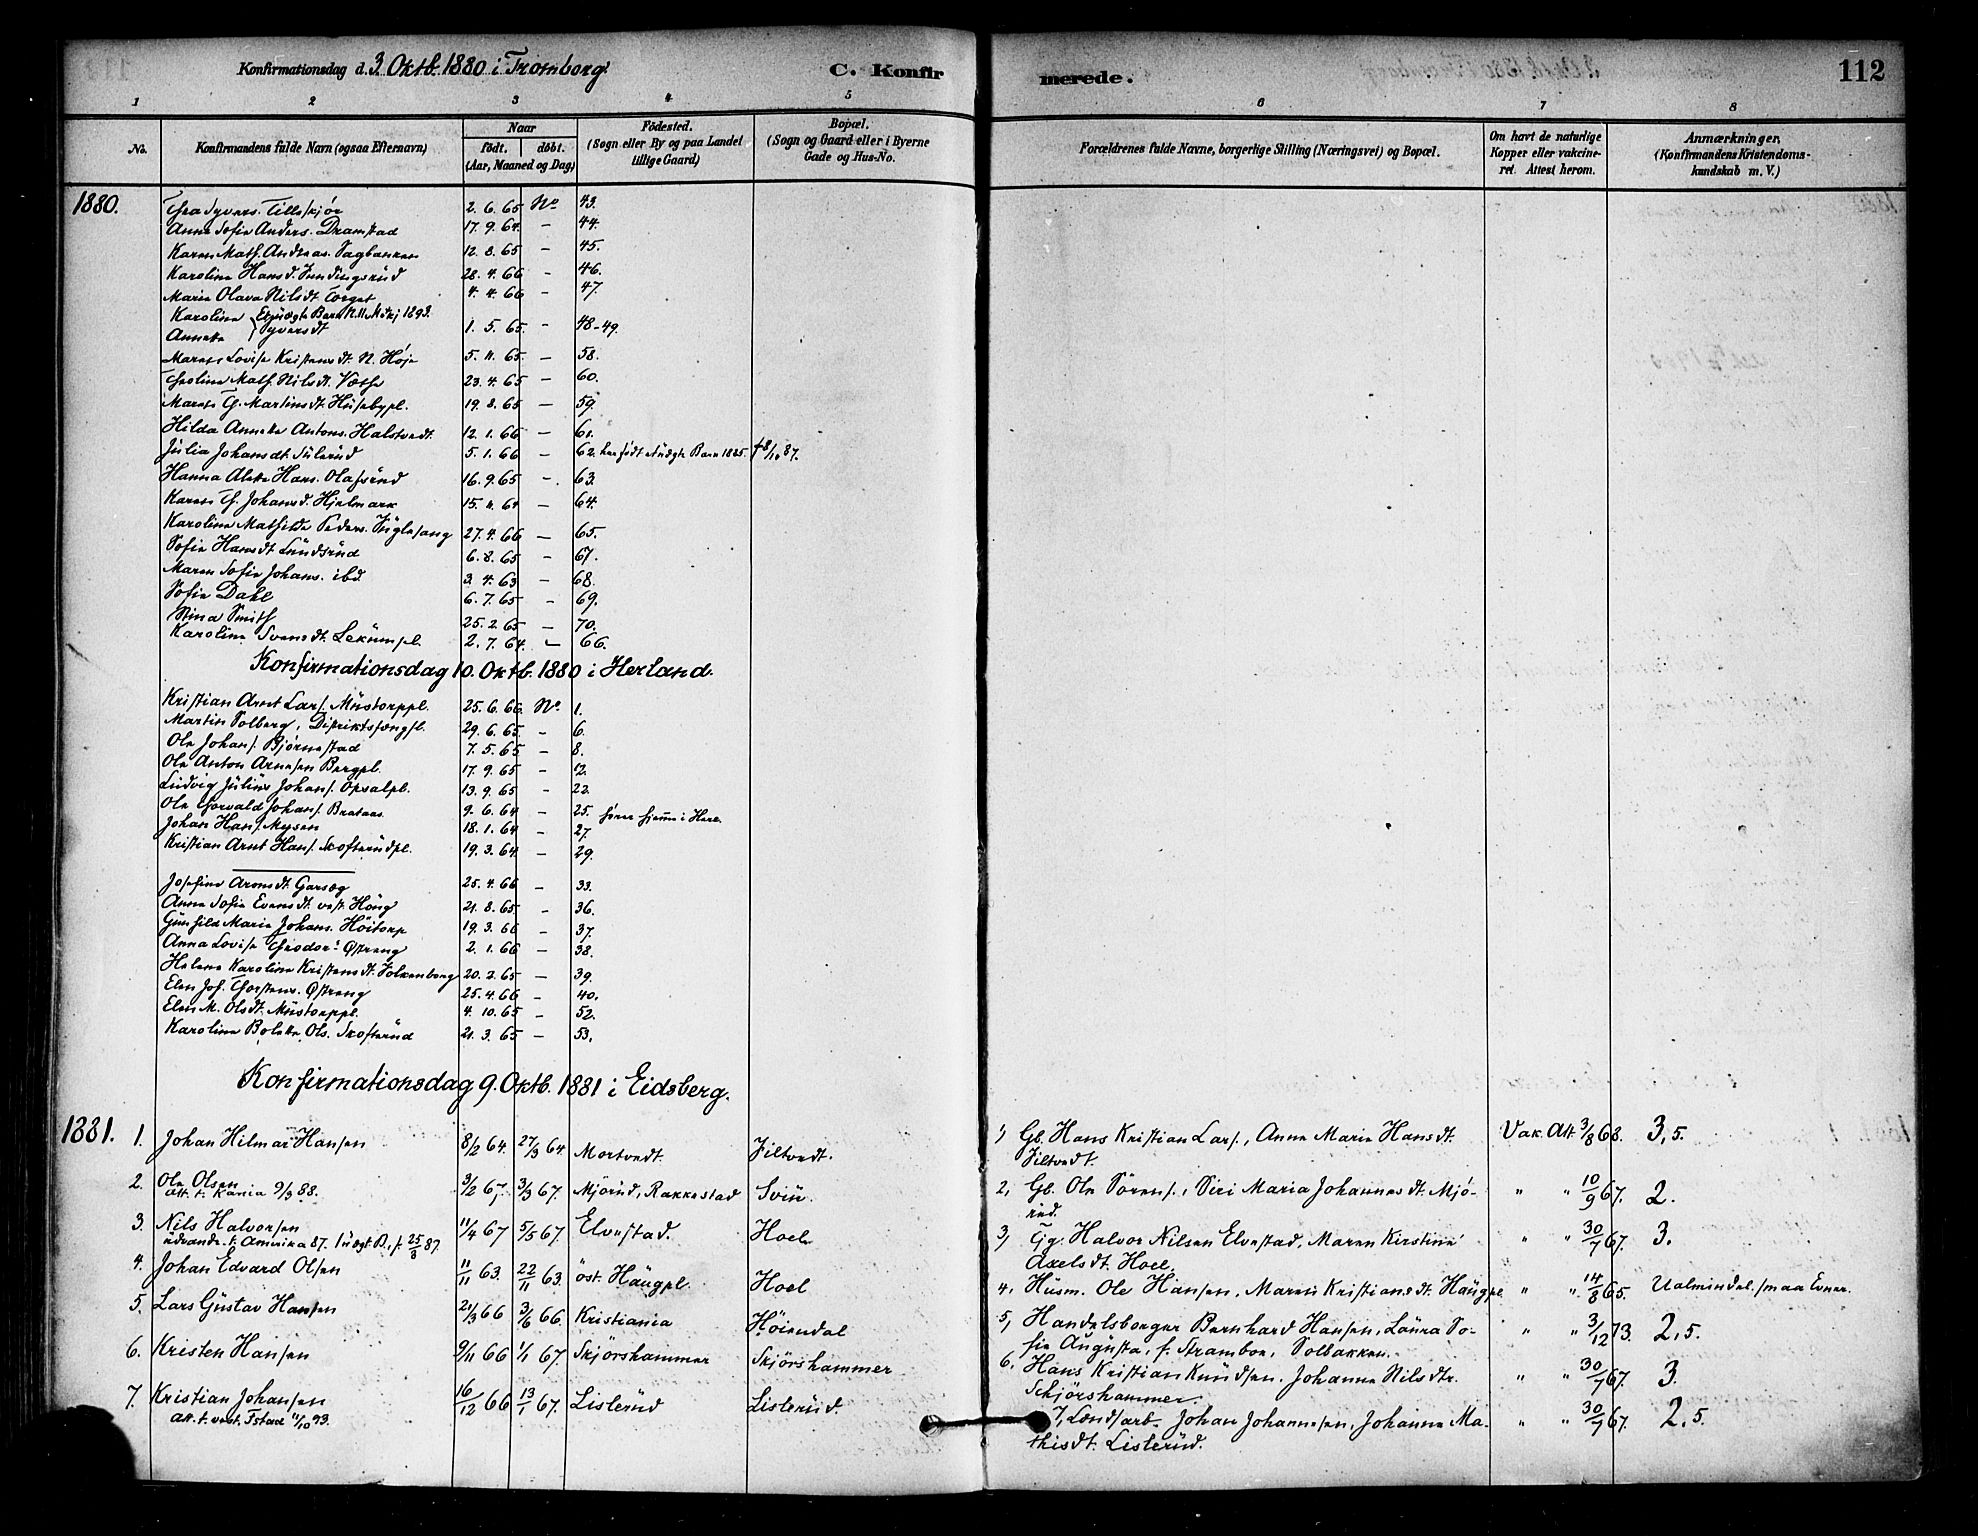 Konfirmationsdag d. 3. Oktb. 1880 i Tromborg. C. Konfir
1 2 3 4 5
No. Konfirmandens fulde Navn (ogsaa Efternavn) Naar födt. döbt. (Aar, Maaned og Dag) Födested. (Sogn eller By og paa Landet tillige Gaard) Bopæl. (Sogn og Gaard eller i Byerne Gade og Hus-No.
1880. Thea Syvers. Tillskjør 2. 6. 65 No 43.
Anna Sofie Anders. Dramstad 17. 9. 64 – 44.
Karen Math. Andreas. Sagbanken 12. 8. 65 – 45.
Karoline Hansd. 28. 4. 66 – 46.
Marie Olava Nilsdt. Torget 4. 4. 66 – 47.
Karoline
Anneke Syversdt 1. 5. 65. – 48-49.
Maren Lovise Kristensdt. N. Høje 5. 11. 65 – 58.
Theoline Math. Nilsdt. 23. 4. 65 – 60.
Maren Th. Martinsdt. Husebypl. 19. 8. 65 – 59.
Hilda Anneke Antons. Halstvedt. 12. 1. 66 – 61.
Julia Johansdt. Sulerud 5. 1. 66 – 62. har født uægte Barn 1885. † 8/10 87.
Hanna Alette Hans. Olafsrud 16. 9. 65 – 63.
Karen Th. Johansd. Hjelmark 15. 11. 64 – 64.
Karoline Mathilde Peders. Fuglesang 27. 4. 66 – 65.
Sofie Hansdt. Lundsrud 6. 8. 65 – 67.
Maren Sofie Johans. ibd. 3. 4. 63 – 68.
Sofie Dahl 6. 7. 65 – 69.
Stina Smith 25. 2. 65 – 70.
Karoline Svensdt. Lekumpl. 2. 7. 64. – 66.
Konfirmationsdag 10. Oktb. 1880 i Herland.
Kristian Arnt Lars. Mustorppl. 25. 6. 66. No. 1.
Martin Solberg, Distriktsfængsl. 29. 6. 65. – 6.
Ole Johans. Bjørnestad 7. 5. 65 – 8.
Ole Anton Arnesen Bergpl. 17. 9. 65 – 12.
Ludvig Julius Johans. Opsalpl. 13. 9. 65 – 22.
Ole Thorvald Johans. Brataas 9. 6. 64 – 25.
Johan Hans. Mysen 18. 1. 64 – 27.
Kristian Arnt Hans. Skofterudpl. 19. 3. 64 – 29.
Josefine Aronsdt. Garseg 25. 4. 66 – 33.
Anna Sofie Evensdt. vest. Haug 21. 8. 65 – 36.
Gunhild Marie Johans. Høitorp 19. 3. 66 – 37.
Anna Lovise Theodor. Østreng 2. 1. 66 – 38.
Helene Karoline Kristensdt. Folkenborg 20. 2. 65 – 39.
Elen Jos. Thorstens. Østreng 25. 4. 66 – 40.
Elen M. Olsdt. Mustorppl. 4. 10. 65 – 52.
Karoline Bolette Ols. Skofterud 21. 3. 65 – 53.
Konfirmationsdag 9. Oktb. 1881 i Eidsberg.
1881. 1. Johan Hilmar Hansen 8/2 64. 27/3 64. Mortvedt. Filtvedt.
2. Ole Olsen 3/2 67, 3/3 67. Mjørud, Rakkestad Sviu.
att. t. Rania 9/3 88.
3. Nils Halvorsen 11/4 67 5/5 67. Elvestad. Hoel
udvandr. t. Amerika 87. 1 uægt B. f. 25/8 87.
4. Johan Edvard Olsen 11/11 63. 22/11 63. öst. Haugpl. Hoel
5. Lars Gustav Hansen 21/3 66 3/6 66. Kristiania Høiendal
6. Kristen Hansen 9/11 66 1/1 67. Skjørshammer Skjørshammer
7. Kristian Johansen 16/12 66 13/1 67. Listerud Listerud.
att. t. vest. Fstad 11/10 93.
merede. 112
6 7 8
Forældrenes fulde Navne, borgerlige Stilling (Næringsvei) og Bopæl. Om havt de naturlige Kopper eller vakcineret. Attest herom. Anmærkninger, (Konfirmandens Kristendomskundskab m. V.)
1, Gb. Hans Kristian Lars., Anne Marie Hansdt. Vak. Att. 3/8 68. 3,5.
Filtvedt.
2, Gb. Ole Sörens., Siri Maria Johannesdt. Mjø- " " 10/9 67. 2.
rud.
3, Gg. Halvor Nilsen Elvestad, Maren Kirstine " " 30/7 67. 3.
Axelsdt. Hoel.
4, Husm. Ole Hansen, Maren Kristiansdt. Haugpl " " 14/8 65. Ualmindel. smaa Evner.
5, Handelsborger Bernhard Hansen, Laura So- " " 3/12 73. 2,5.
fie Augusta, f. Stramboe, Solbakken.
6. Hans Kristian Knudsen, Johanne Nilsdtr. " " 30/7 67. 3.
Schjørshammer.
7, Landarb. Johan Johannesen, Johanne Ma- " " 30/7 67. 2,5.
thisdt. Listerud.